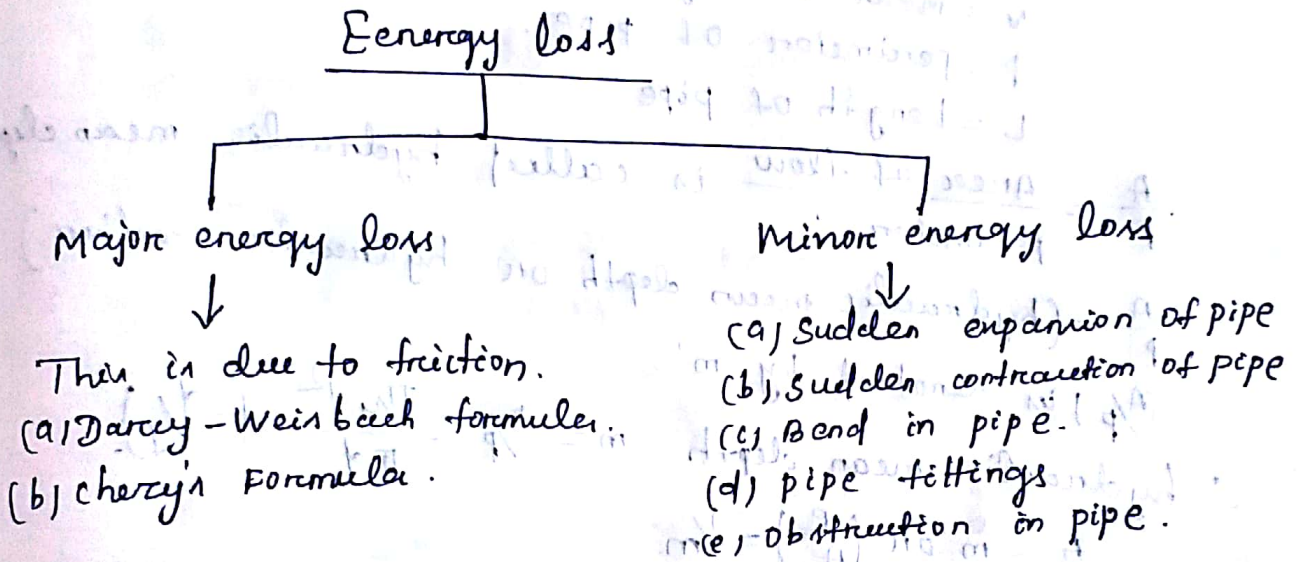 Eenergy loss
Major energy loss
This is due to friction.
(a) Darcy - Weisbach formula.
(b) Chezy's Formula.
Minor energy loss
(a) Sudden expansion of pipe
(b) Sudden contraction of pipe
(c) Bend in pipe.
(d) pipe fittings
(e) obstruction in pipe.